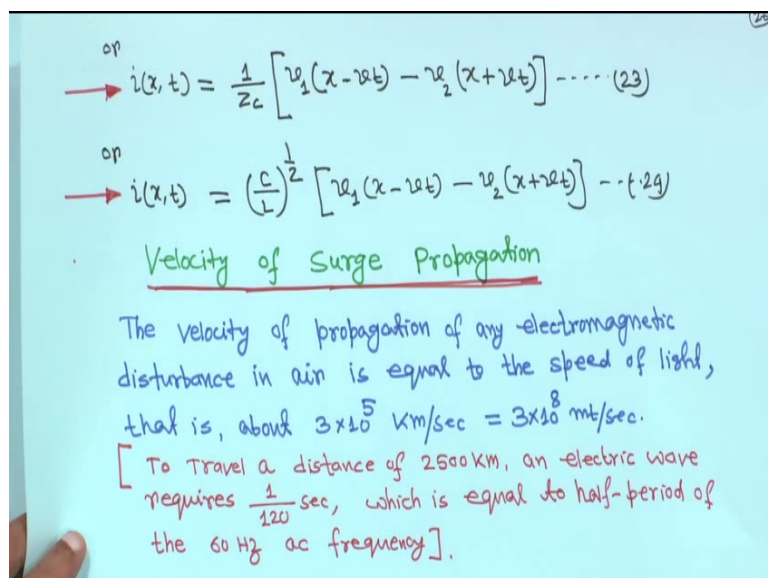 or
i(x,t) = 1/Zc [v₁(x-vt) - v₂(x+vt)] ----- (23)
or
i(x,t) = (C/L)^1/2 [v₁(x-vt) - v₂(x+vt)] --(.24)
Velocity of Surge Propagation
The velocity of propagation of any electromagnetic
disturbance in air is equal to the speed of light,
that is, about 3×10⁵ Km/sec = 3×10⁸ mt/sec.
[ To Travel a distance of 2500 KM, an electric wave
requires 1/120 sec, which is equal to half-period of
the 60 HZ ac frequency].